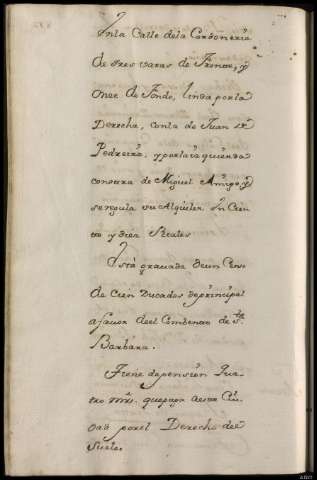 En la Calle dela Cordoneria
de tres varas de Frente, y
onze de Fondo, linda por la
Derecha, con la de Juan
Pedreira, y por la izquierda
con otra de Miguel Amigo, y
se regula su Alquiler En Cien
to y diez Reales
Está gravada de un Cens
de Cien Ducados de principal
a favor deel Combento de Sta.
Barbara.
Tiene de pension Qua
tro mrs. que paga a esta Ciu
dad por el Derecho del
Suelo.